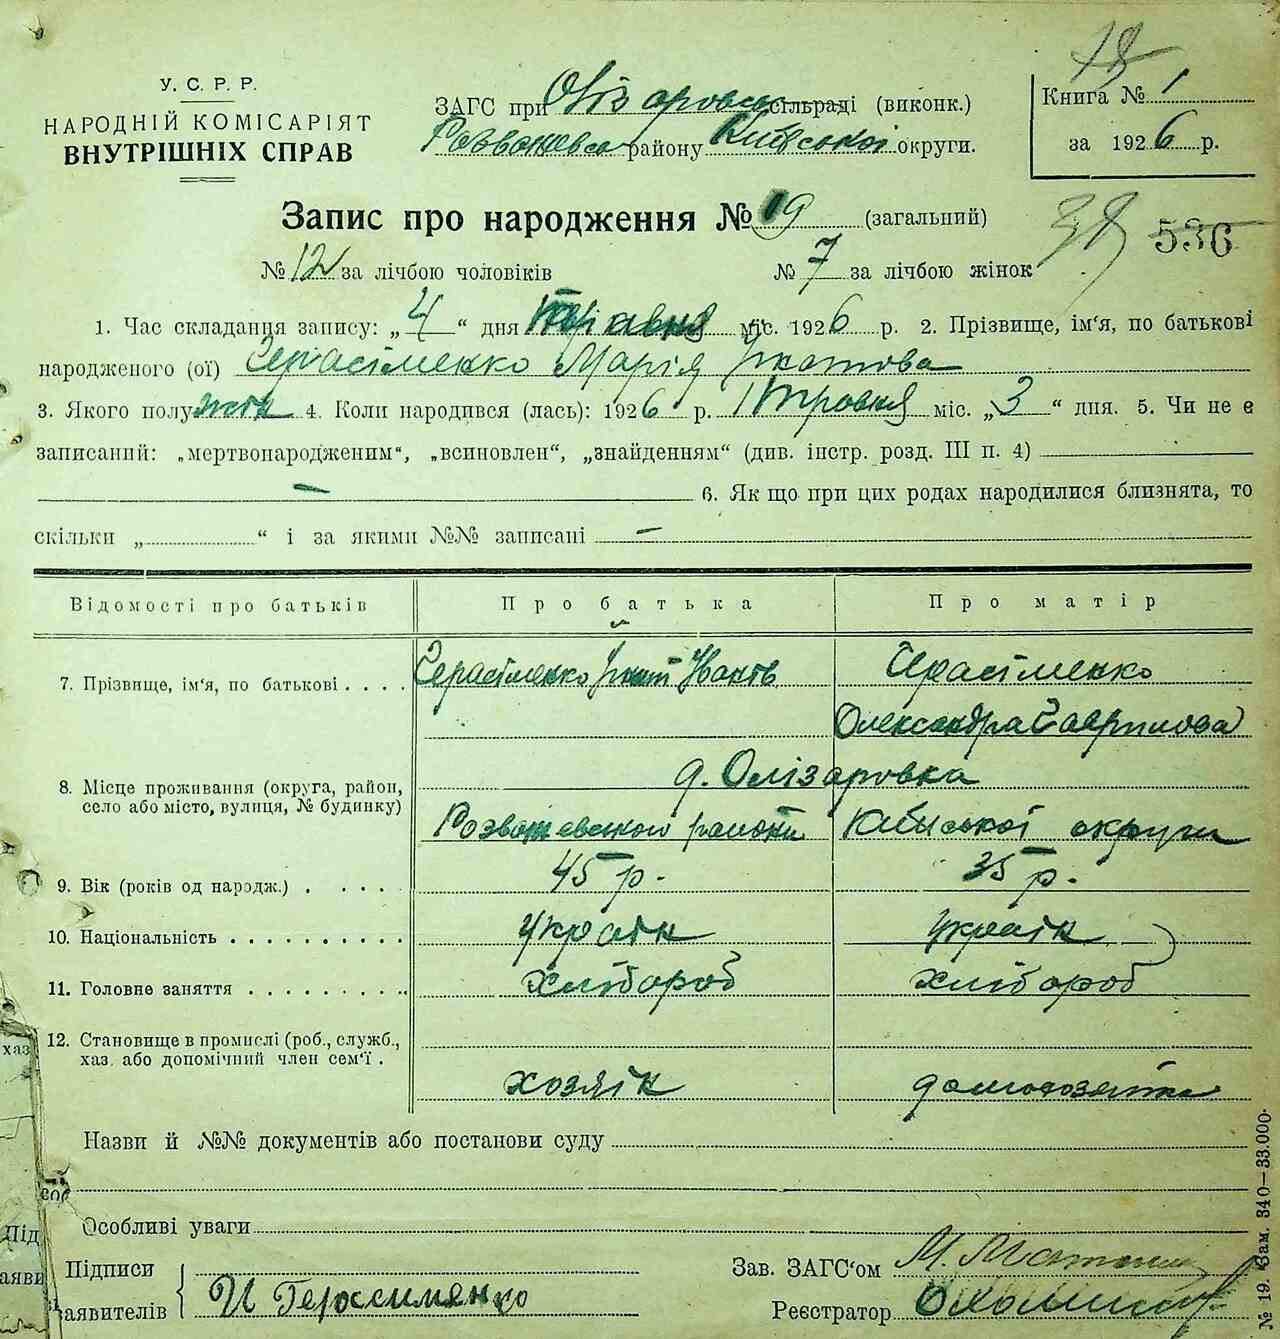 У. С. Р. Р.
НАРОДНІЙ КОМІСАРІЯТ
ВНУТРІШНІХ СПРАВ
ЗАГС при сільраді (виконк.)
району Київської округи.
18
Книга № 1
за 1926 р.
Запис про народження № 19 (загальний)
38 536
№ 12 за лічбою чоловіків № 7 за лічбою жінок
1. Час складання запису: „4“ дня Травня міс. 1926 р. 2. Прізвище, ім'я, по батькові
народженого (ої) Герасіменко Марія Гнатова
3. Якого полу жін 4. Коли народився (лась): 1926 р. міс. „3“ дня. 5. Чи не є
записаний: „мертвонародженим“, „всиновлен“, „знайденням“ (див. інстр. розд. III п. 4)
— 6. Як що при цих родах народилися близнята, то
скільки „ “ і за якими №№ записані —
Відомості про батьків Про батька Про матір
7. Прізвище, ім'я, по батькові . . . . Герасіменко Гнат Іванів Герасіменко
Олександра Гаврилова
8. Місце проживання (округа, район, село або місто, вулиця, № будинку) д. Олізаровка
району Київської округи
9. Вік (років од народж.) . . . . . 45 р. 35 р.
10. Національність . . . . . . . . . . україн україн
11. Головне заняття . . . . . . . . . . хлібороб хлібороб
12. Становище в промислі (роб., служб.,
хаз. або допомічний член сем'ї . хозяїн домохозяйка
Назви й №№ документів або постанови суду
Особливі уваги
Підписи
заявителів И Герассименко
Зав. ЗАГС'ом М.
Реєстратор
№ 19. Зам. 340—33.000.
хаз
Під
аяви